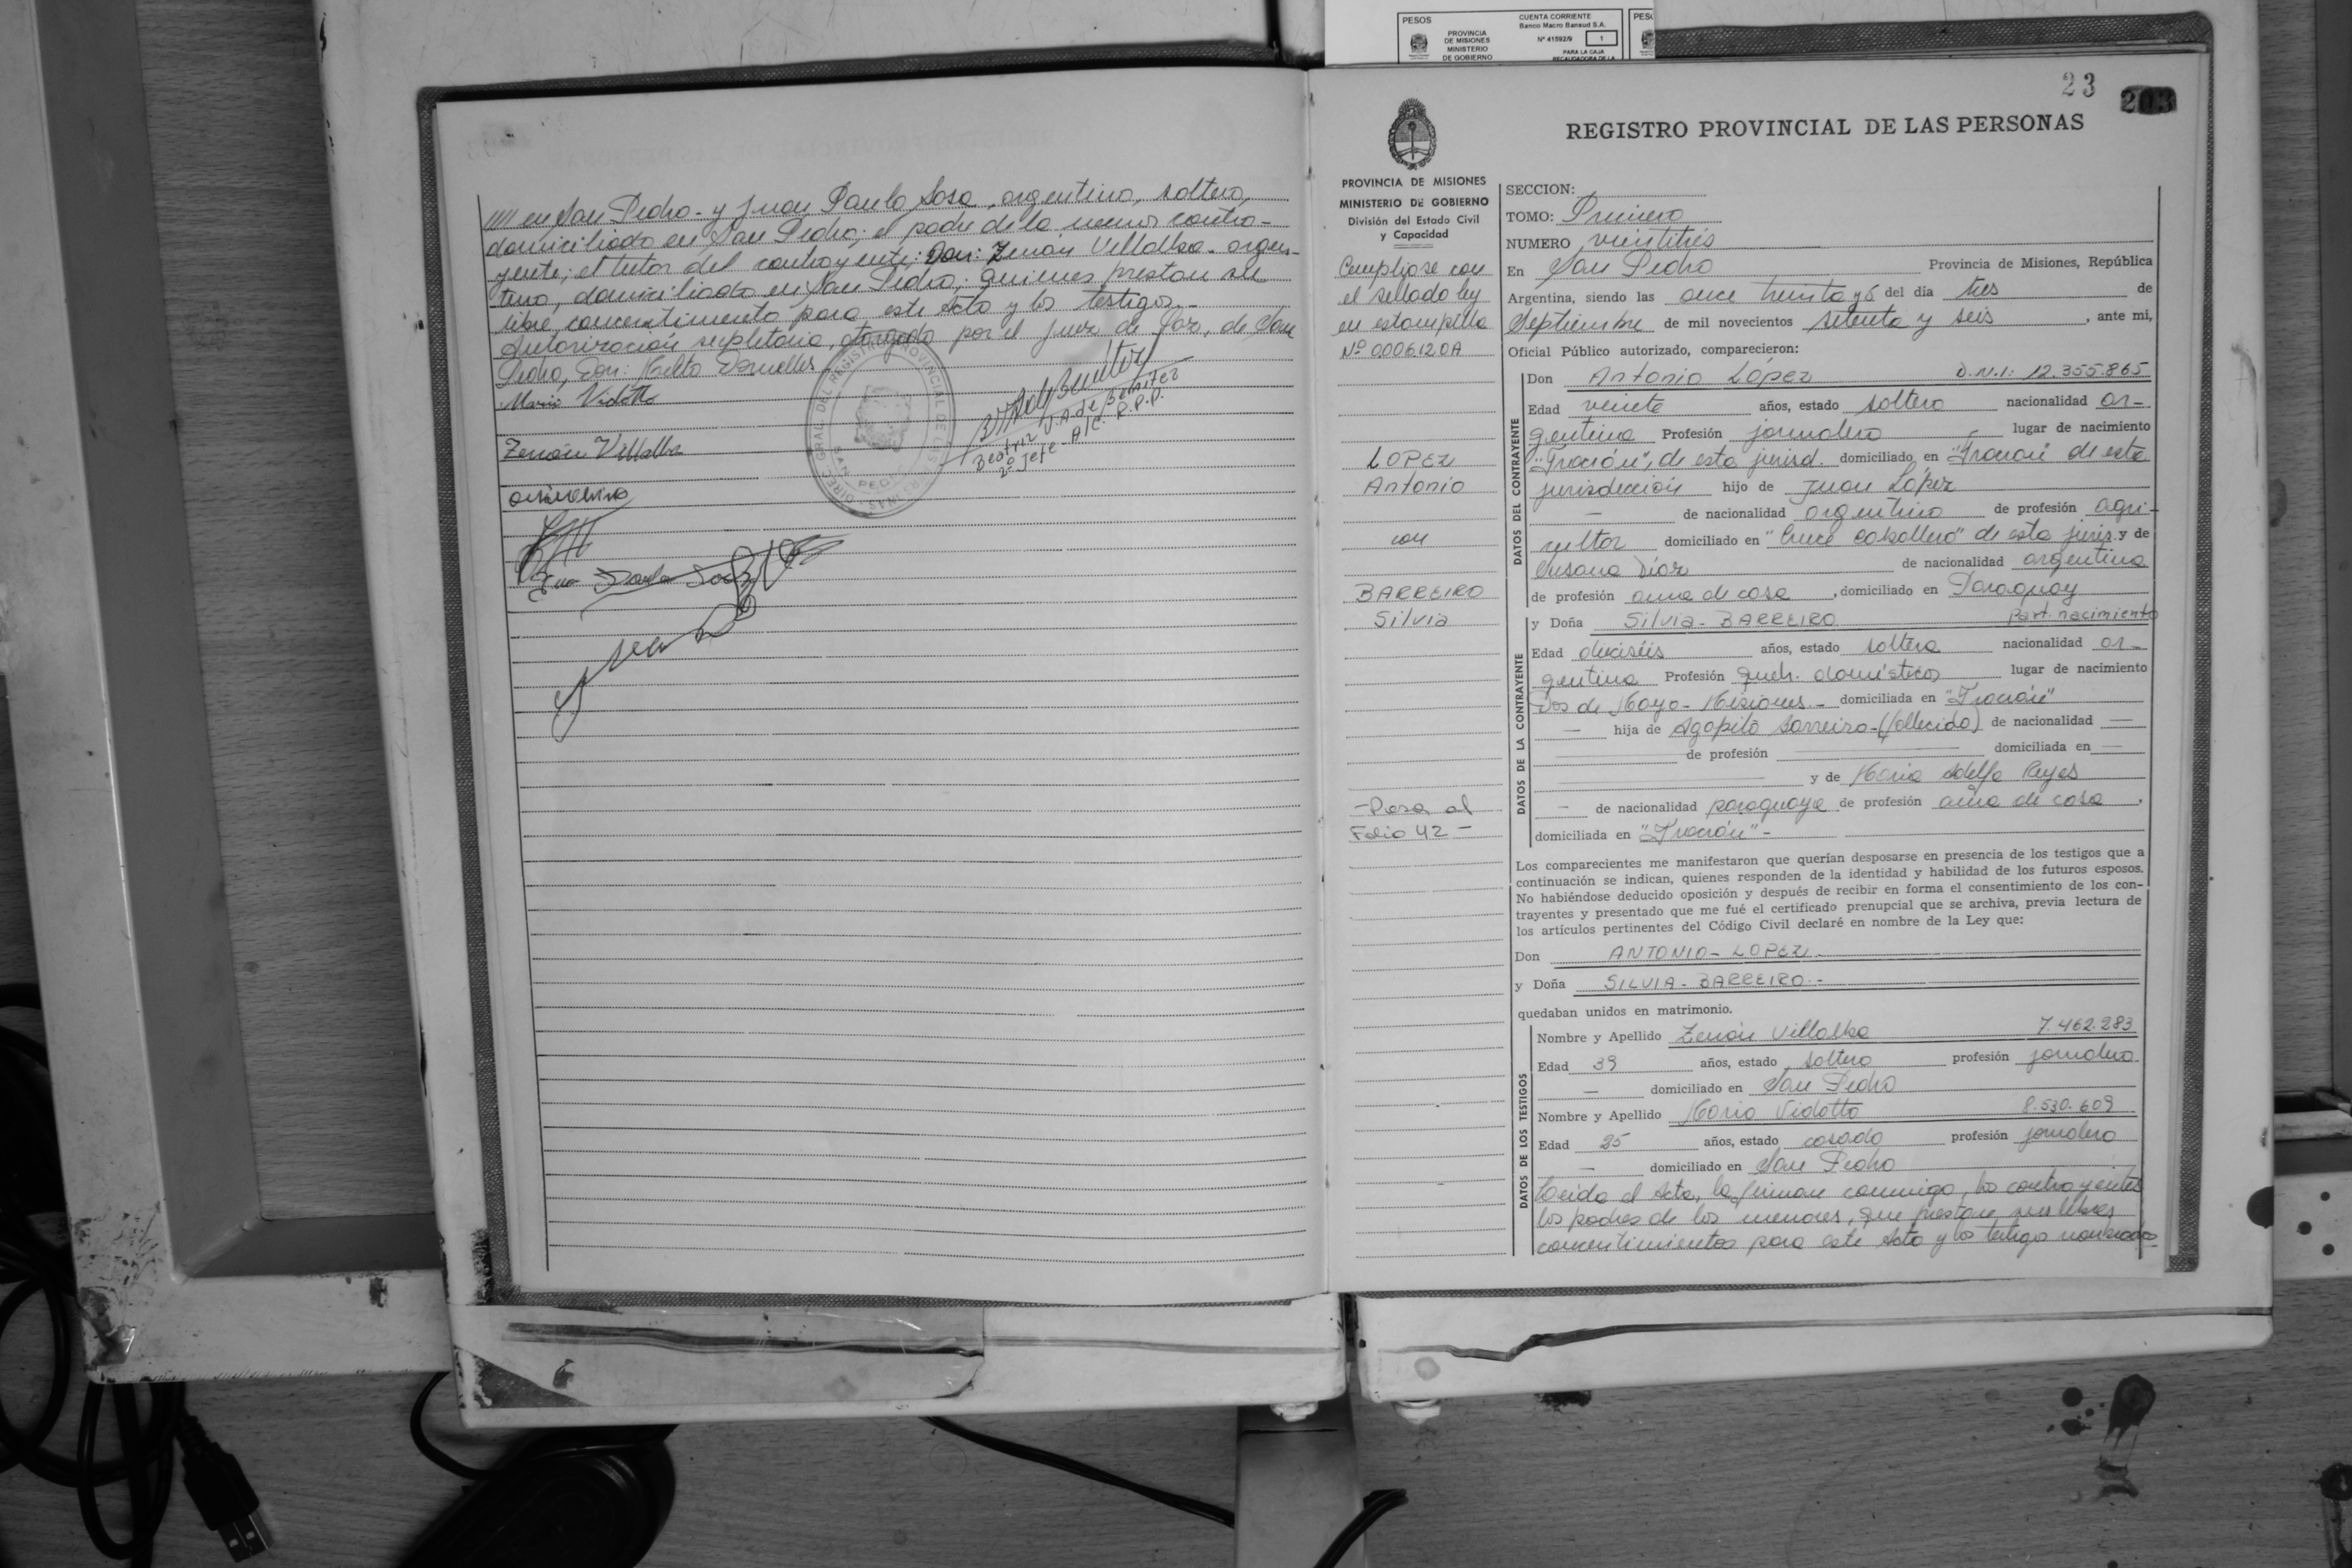 //// en San Pedro - y Juan Paulo Sosa, argentino, soltero,
domiciliado en San Pedro; el padre de la menor contra-
yente; el tutor del contrayente; Don: Zenón Villalba - argen-
tino, domiciliado en San Pedro; quienes prestan su
libre concentimiento para este acto y los testigos.-
Autorización supletoria, otorgada por el Juez de Paz, de San
Pedro, Don:
Mario Vidotto
Zenón Villalba
DIREC. GRAL. DEL REGISTRO PROVINCIAL DE LAS
Beatriz J.A. de Benitez
2º Jefe A/C. R.P.P.
PESOS
PROVINCIA
DE MISIONES
MINISTERIO
DE GOBIERNO
CUENTA CORRIENTE
Banco Macro Bansud S.A.
Nº 41592/9 1
PARA LA CAJA
RECAUDADORA DE LA
PESO
23 203
REGISTRO PROVINCIAL DE LAS PERSONAS
PROVINCIA DE MISIONES
MINISTERIO DE GOBIERNO
División del Estado Civil
y Capacidad
Cumpliose con
el sellado ley
en estampilla
Nº 0006120A
LOPEZ
Antonio
con
BARREIRO
Silvia
-Pasa al
Folio 42-
SECCION:
TOMO: Primero
NUMERO veintitrés
En San Pedro Provincia de Misiones, República
Argentina, siendo las once treinta y 5 del día tres de
Septiembre de mil novecientos setenta y seis, ante mi,
Oficial Público autorizado, comparecieron:
DATOS DEL CONTRAYENTE
Don Antonio López D.N.I: 12.355.865
Edad veinte años, estado soltero nacionalidad ar-
gentina Profesión jornalero lugar de nacimiento
"Tracción", de esta jurisd. domiciliado en "Tracción" de esta
jurisdicción hijo de Juan López
— de nacionalidad argentino de profesión agri-
cultor domiciliado en "Cruce Caballero" de esta juris. y de
Susana Díaz de nacionalidad argentina
de profesión ama de casa, domiciliado en Paraguay
DATOS DE LA CONTRAYENTE
y Doña Silvia - BARREIRO Part. nacimiento
Edad dieciséis años, estado soltera nacionalidad ar-
gentina Profesión queh. domésticos lugar de nacimiento
Dos de Mayo - Misiones - domiciliada en "Tracción"
— hija de Agapito Barreiro - (fallecido) de nacionalidad —
de profesión — domiciliada en —
y de María Adelfa Reyes
— de nacionalidad paraguaya de profesión ama de casa,
domiciliada en "Tracción" -
Los comparecientes me manifestaron que querían desposarse en presencia de los testigos que a
continuación se indican, quienes responden de la identidad y habilidad de los futuros esposos.
No habiéndose deducido oposición y después de recibir en forma el consentimiento de los con-
trayentes y presentado que me fué el certificado prenupcial que se archiva, previa lectura de
los artículos pertinentes del Código Civil declaré en nombre de la Ley que:
Don ANTONIO - LOPEZ
y Doña SILVIA - BARREIRO -
quedaban unidos en matrimonio.
DATOS DE LOS TESTIGOS
Nombre y Apellido Zenón Villalba 7.462.283
Edad 39 años, estado soltero profesión jornalero
— domiciliado en San Pedro
Nombre y Apellido Mario Vidotto 8.530.609
Edad 25 años, estado casado profesión jornalero
— domiciliado en San Pedro
Leida el Acta, la firman conmigo, los contrayentes
los padres de los menores, que prestan sus libres
concentimientos para este Acto y los testigos nombrados